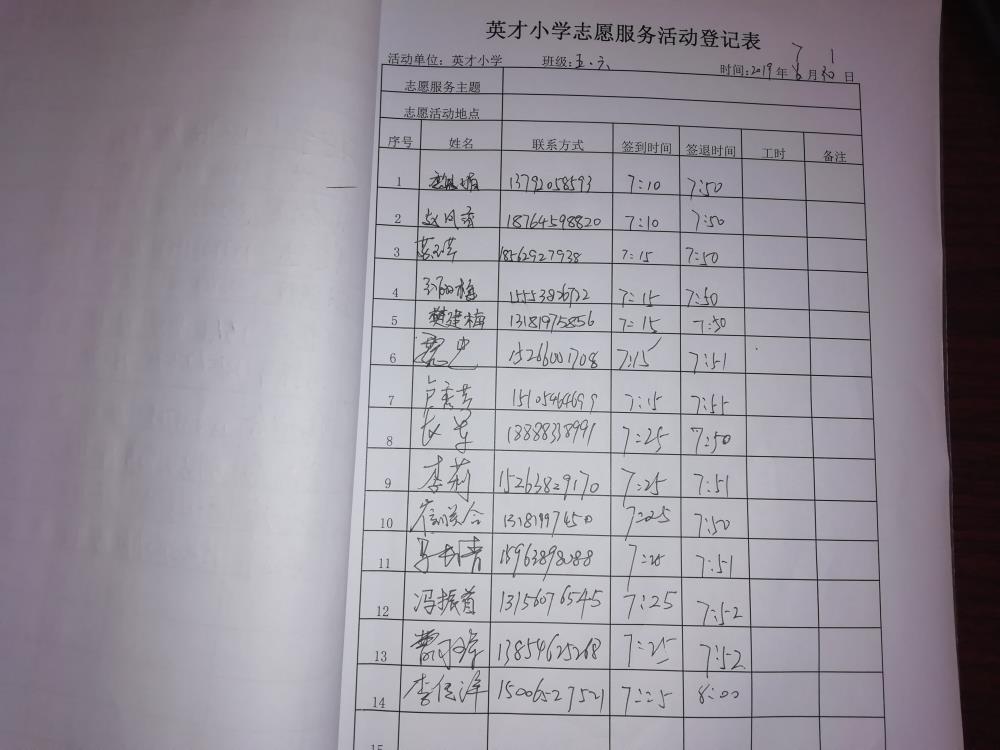 英才小学志愿服务活动登记表
活动单位：英才小学 班级：五.六 时间：2019年6月30日
7 1
志愿服务主题
志愿活动地点
序号 姓名 联系方式 签到时间 签退时间 工时 备注
1 13792058593 7:10 7:50
2 赵凤 18764598820 7:10 7:50
3 18562927938 7:15 7:50
4 15553826722 7:15 7:50
5 樊建梅 13181975856 7:15 7:50
6 15266001708 7:15 7:51
7 卢秀芸 15105464699 7:15 7:55
8 18888338991 7:25 7:50
9 李莉 15263829170 7:25 7:51
10 13181997450 7:25 7:50
11 15963898088 7:25 7:51
12 冯振首 13156076545 7:25 7:52
13 13854625268 7:25 7:52
14 李 15006527521 7:25 8:00
15